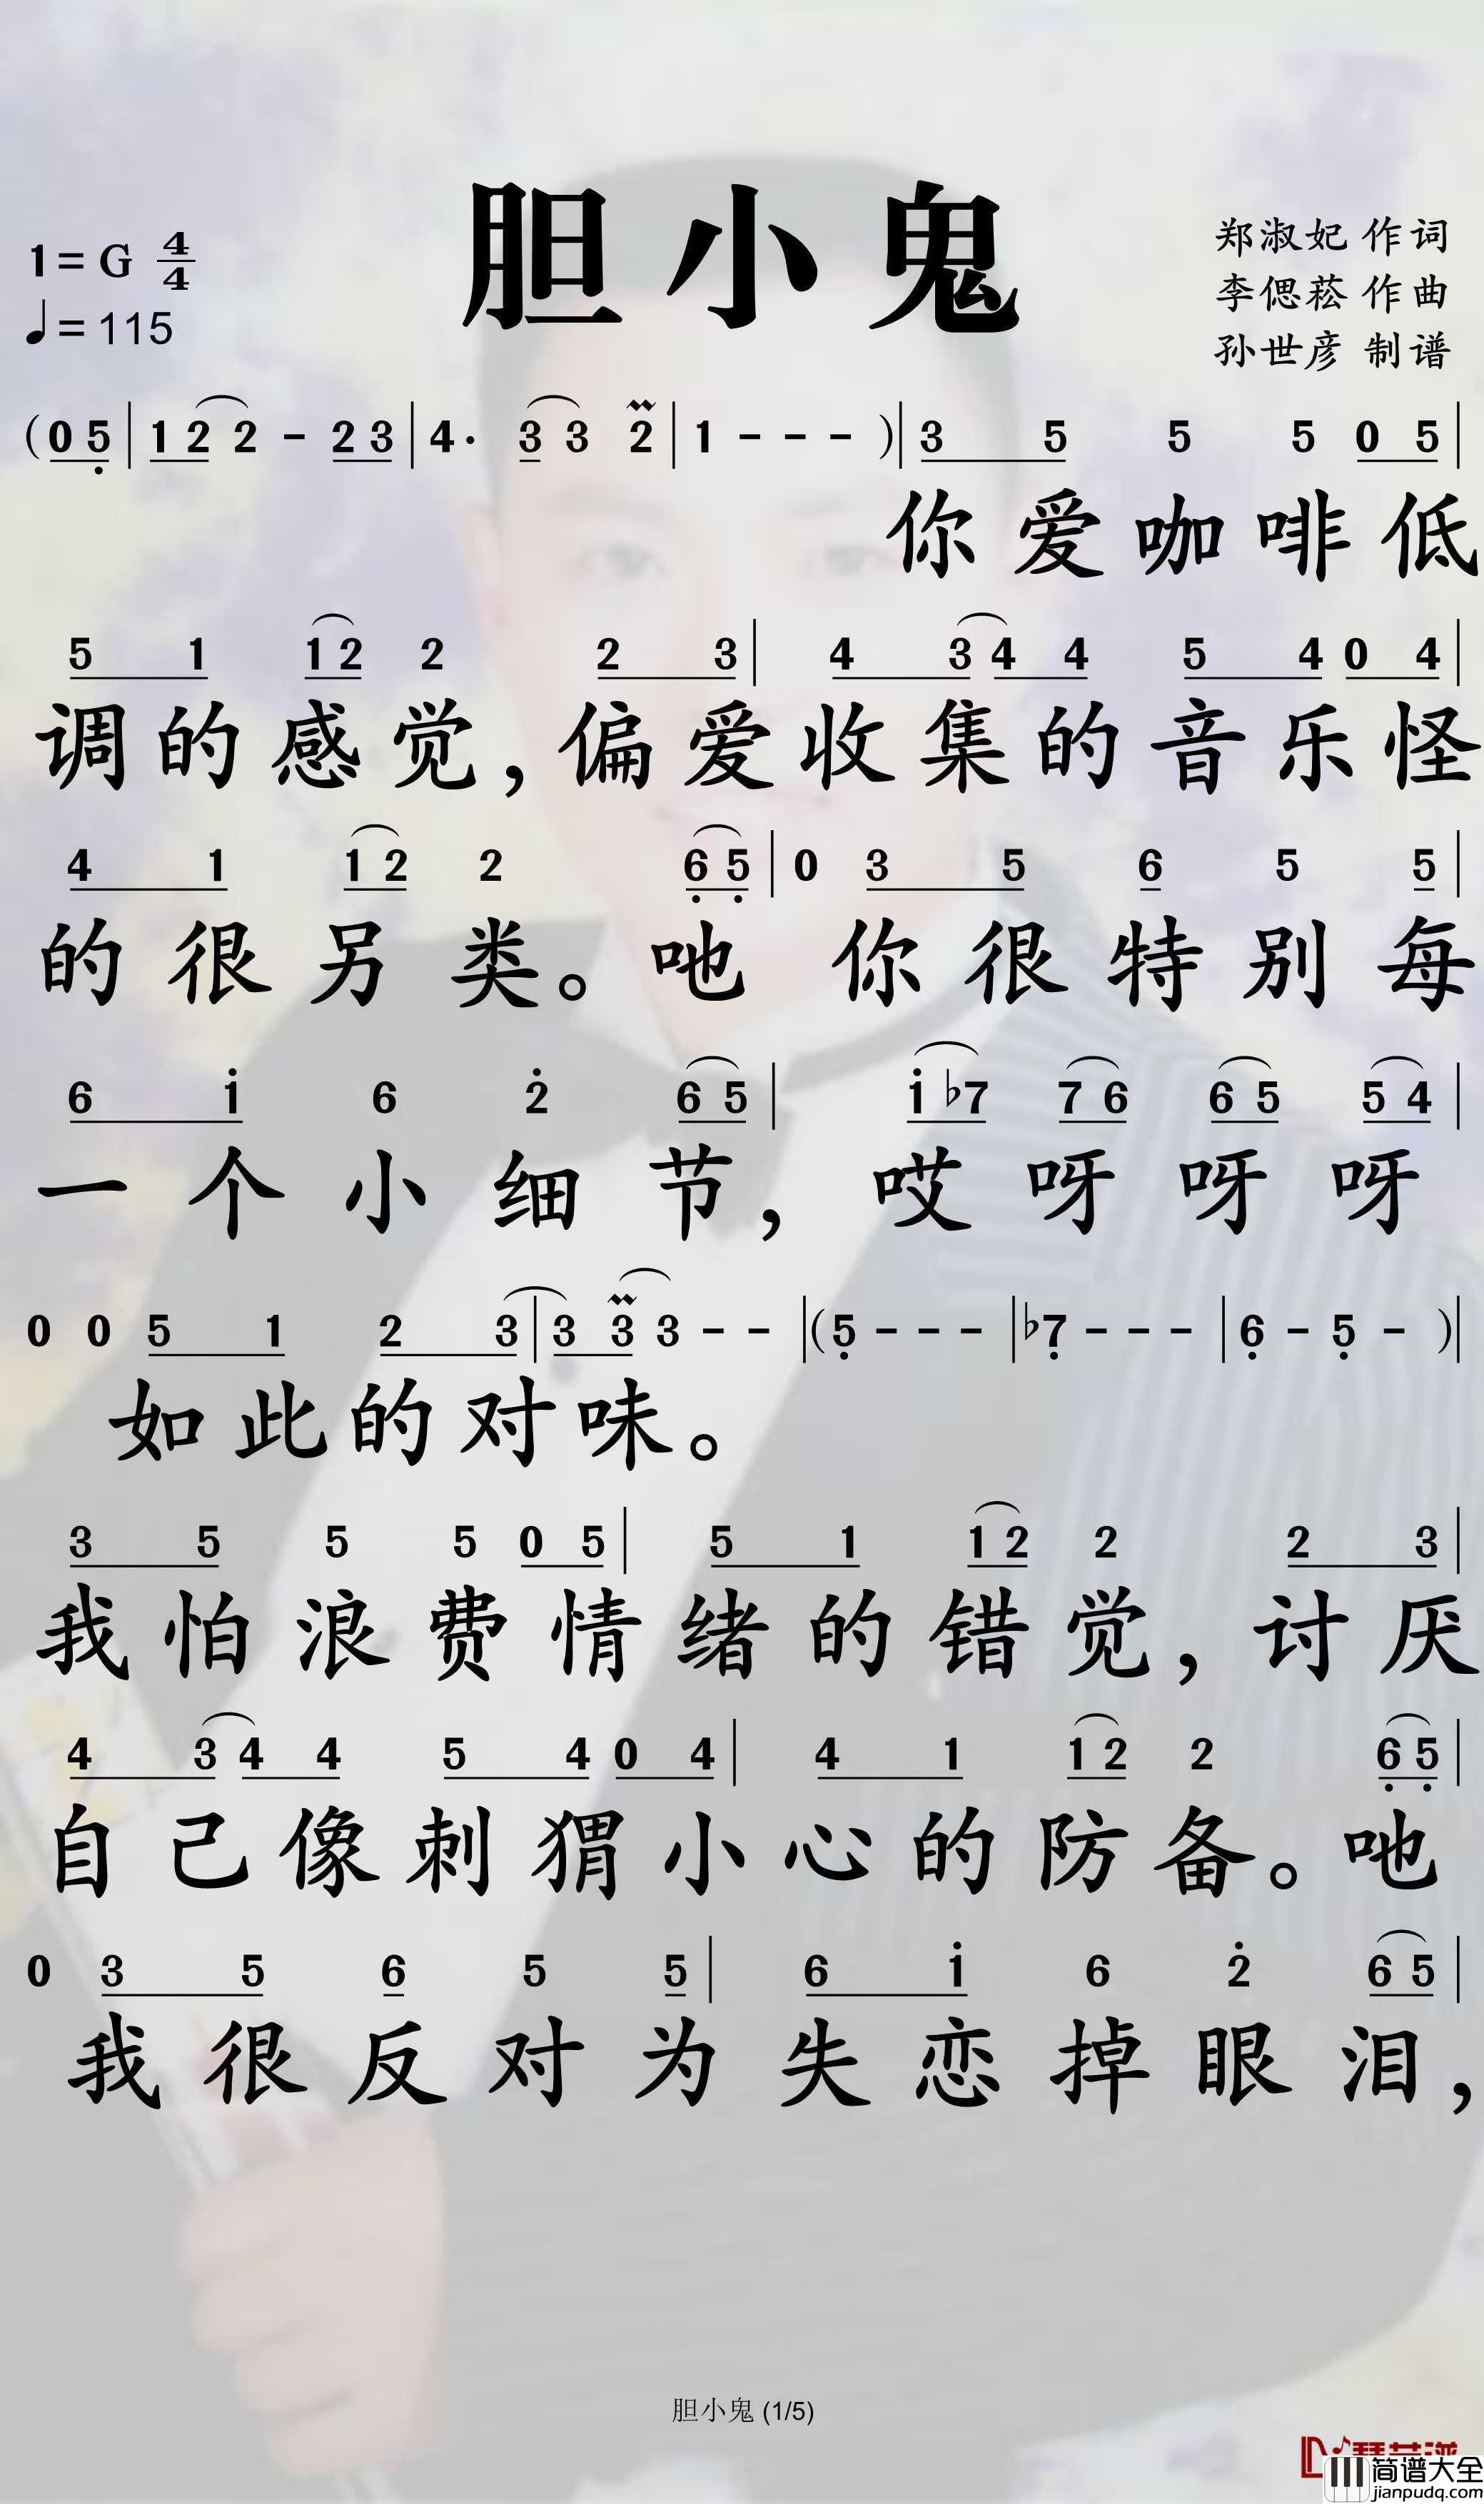 胆小鬼
1=G 4/4
♩=115
郑淑妃 作词
李偲菘 作曲
孙世彦 制谱
(0 5 | 1 2 2 - 2 3 | 4· 3 3 2 | 1 - - - )| 3 5 5 5 0 5 |
你爱咖啡低
5 1 1 2 2 2 3 | 4 3 4 4 5 4 0 4 |
调的感觉,偏爱收集的音乐怪
4 1 1 2 2 6 5 | 0 3 5 6 5 5 |
的很另类。吔 你很特别每
6 1 6 2 6 5 | 1 ♭7 7 6 6 5 5 4 |
一个小细节,哎呀呀呀
0 0 5 1 2 3 | 3 3 3 - - |(5 - - - |♭7 - - - | 6 - 5 - )|
如此的对味。
3 5 5 5 0 5 | 5 1 1 2 2 2 3 |
我怕浪费情绪的错觉,讨厌
4 3 4 4 5 4 0 4 | 4 1 1 2 2 6 5 |
自己像刺猬小心的防备。吔
0 3 5 6 5 5 | 6 1 6 2 6 5 |
我很反对为失恋掉眼泪,
胆小鬼 (1/5)
简谱大全
jianpudq.com